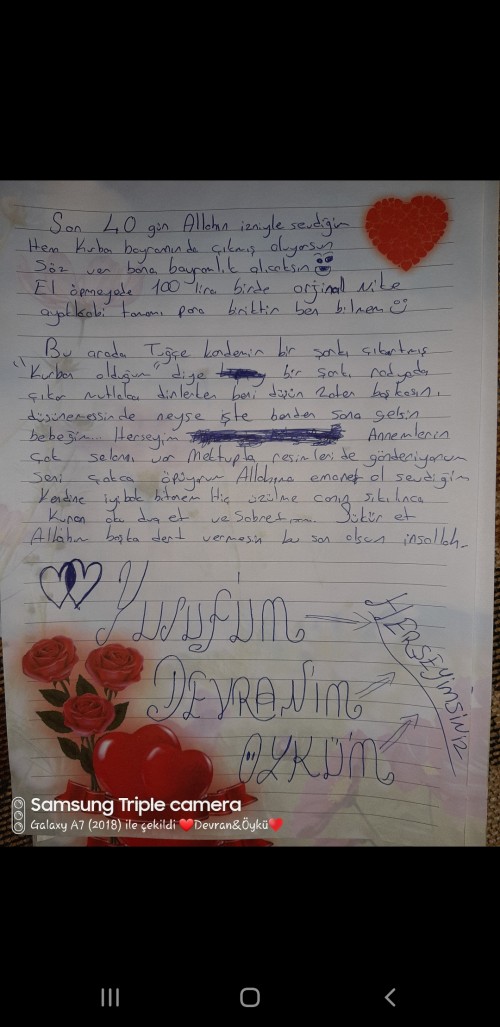 Son 40 gün Allahın izniyle sevdiğim
Hem Kurba bayramında çıkmış oluyorsun
Söz ver bana bayramlık alıcaksın
El öpmeyede 100 lira birde orjinal Nike
ayakkabı tamamı para biriktir ben bilmem
Bu arada Tuğçe kandemir bir şarkı çıkartmış
"Kurban olduğum" diye bir şarkı radyoda
çıkar mutlaka dinlerken beni düşün zaten başkasını
düşünemessinde neyse işte benden sana gelsin
bebeğim... Herşeyim Annemlerin
çok selamı var Mektupta resimleri de gönderiyorum
Seni çokca öpüyorum Allahıma emanet ol sevdiğim
Kendine iyi bak bitanem Hiç üzülme canın sıkılınca
Kuran oku dua et ve Sabret Şükür et
Allahım başka dert vermesin bu son olsun inşallah.
Yusufum
DEVRANIM
ÖYKÜM
HERŞEYİMSİNİZ
Samsung Triple camera
Galaxy A7 (2018) ile çekildi ❤️Devran&Öykü❤️